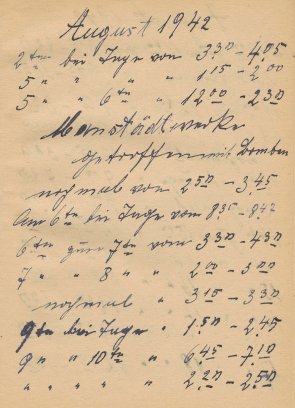 August 1942
2ten bei Tage von 3 30 – 4 05
5 " " " " 1 15 – 2 00
5 " " 6 te " 12 00 – 2 30
Manstädtwerke
getroffen mit Bomben
nochmal von 2 50 – 3 45
Am 6 te bei Tage von 8 35 – 8 42
6 ten zum 7 ten vom 3 30 – 4 30
7 " " 8 " " 2 00 – 3 00
nochmal " 3 15 – 3 30
9 ten bei Tage " 1 50 – 2 45
9 " " 10 te " 6 45 – 7 10
" " " " " 2 20 – 2 50